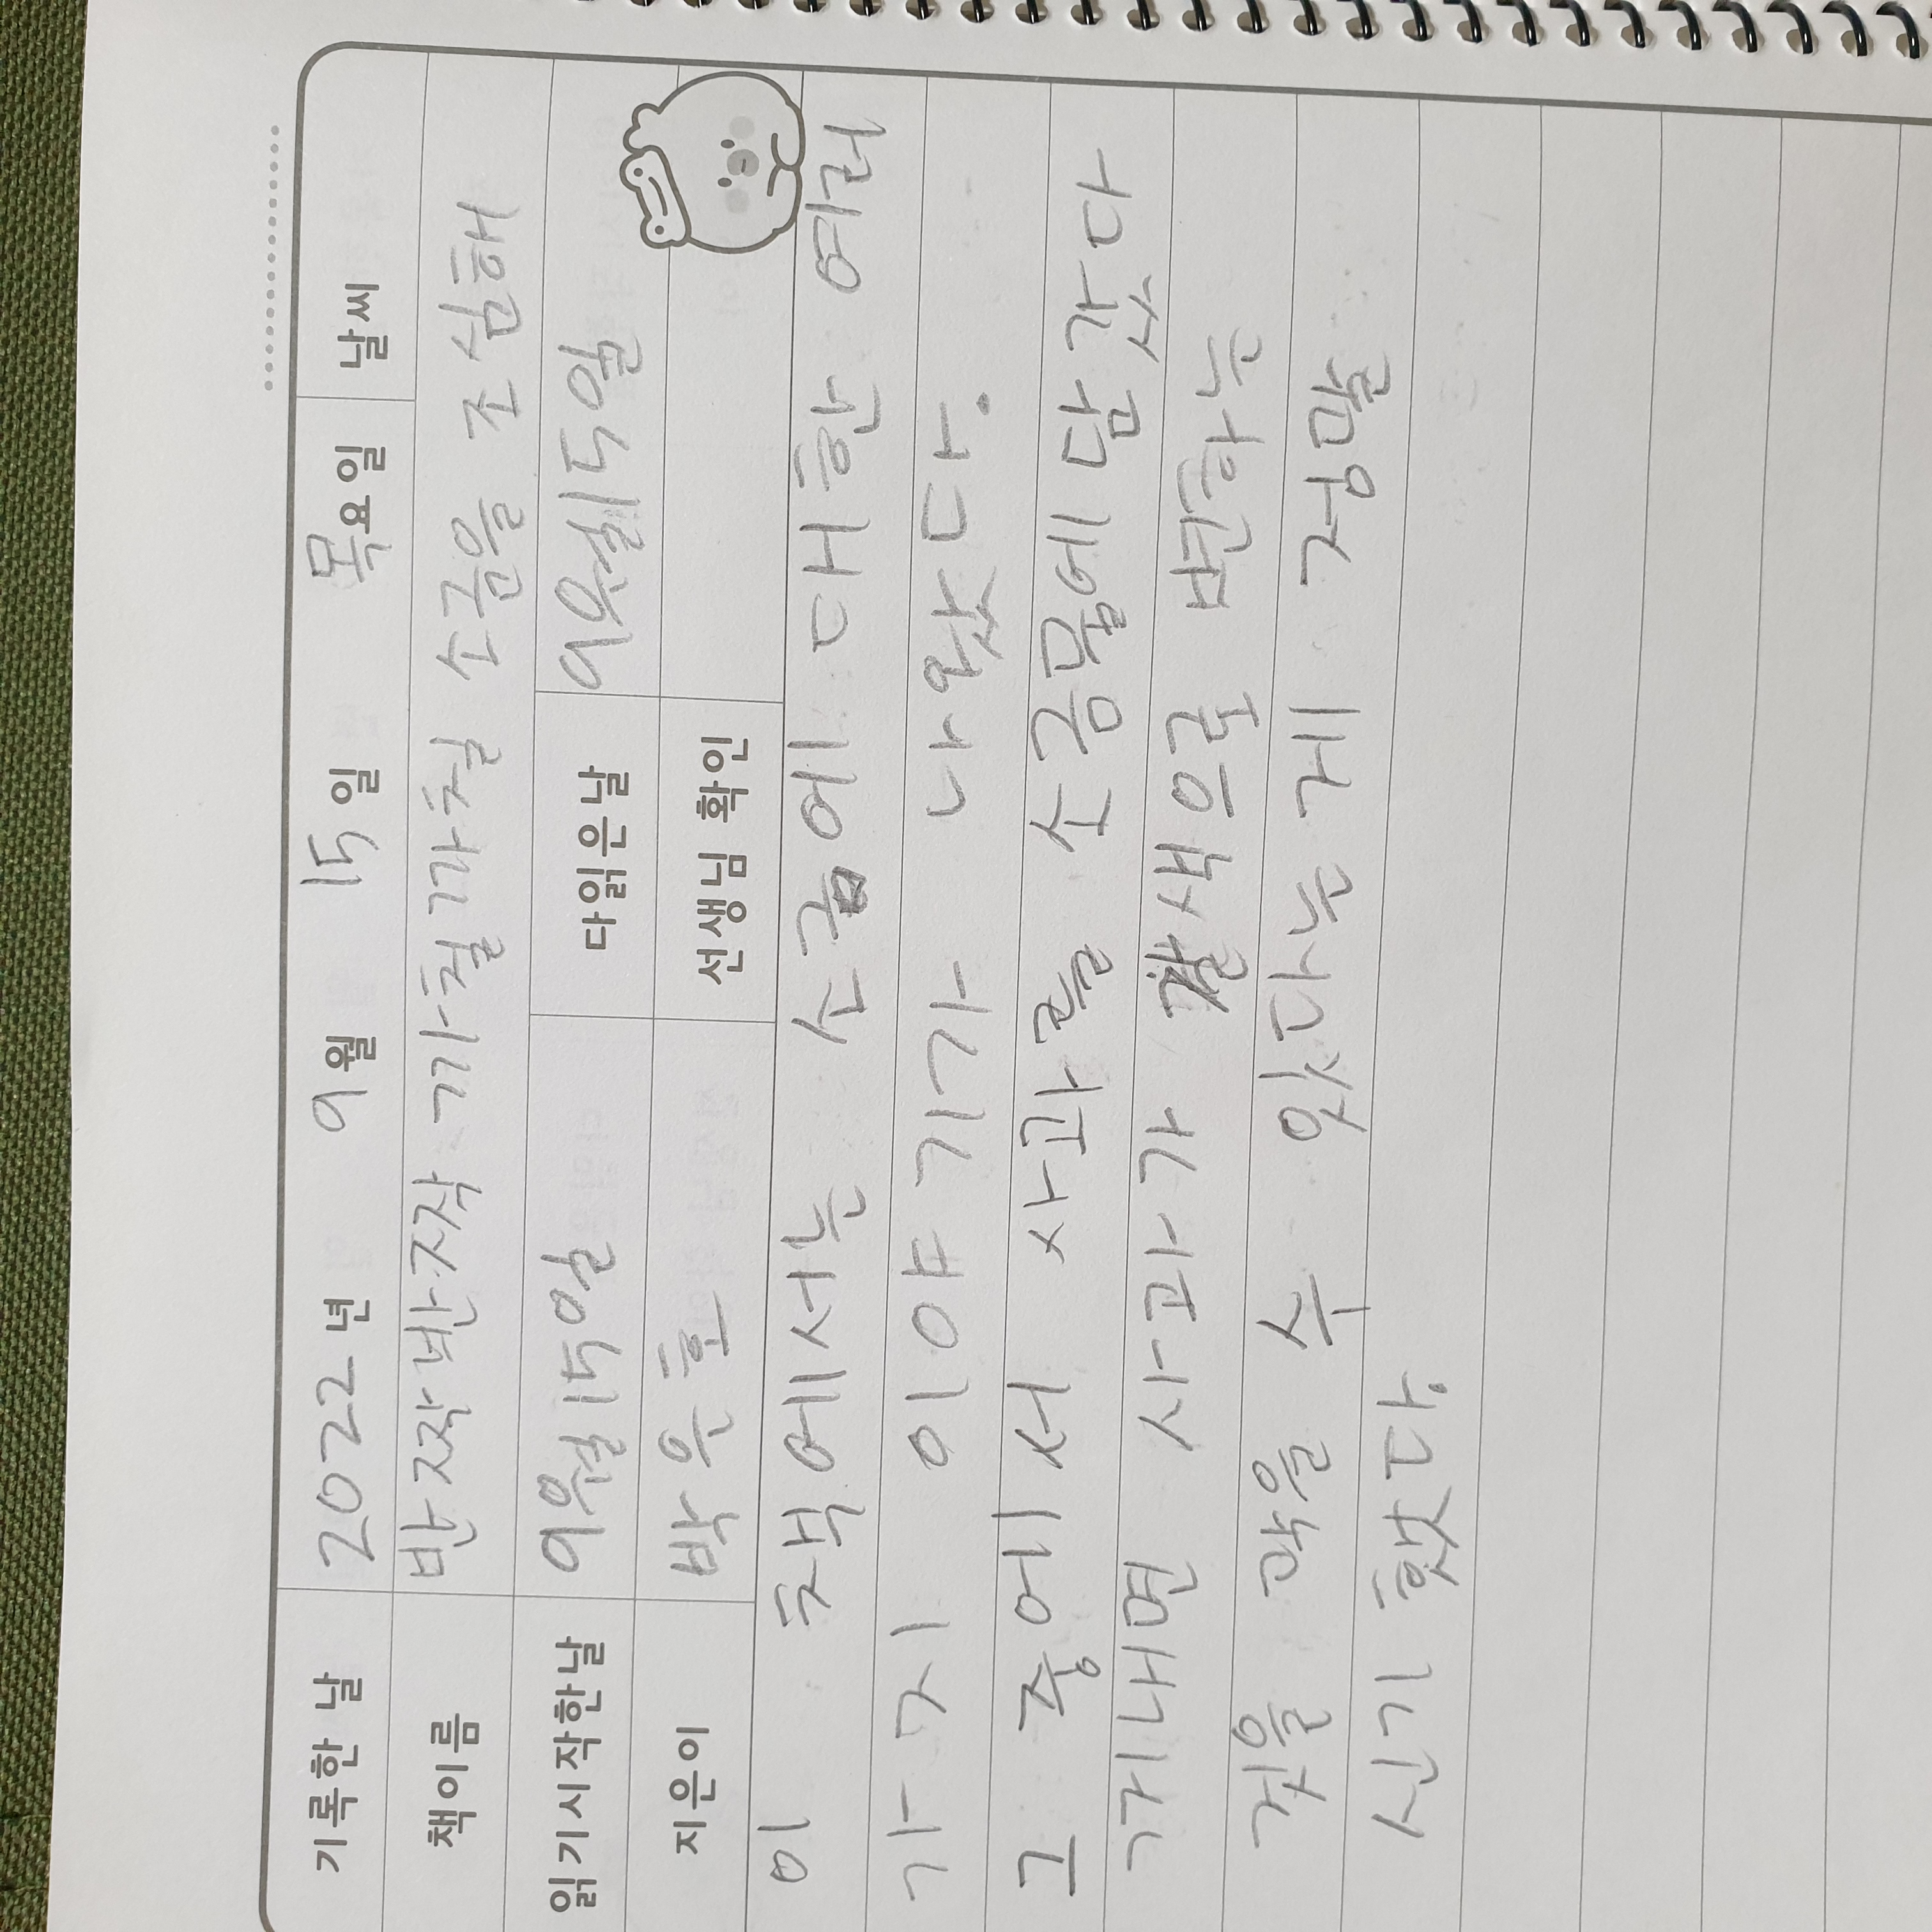 기록한 날 2022 년 9 월 15 일 목요일 날씨
책이름 반짝반짝 까칠까칠 소금을 조심해
읽기시작한날 9월 15일 다읽은날 9월 15일
지은이 박은호 선생님 확인
이 책에서는 소금에 대한 여러
가지 이야기가 나왔다.
그 중에서 사과를 소금물에 담갔다
꺼내면 사과가 갈색으로 변하는
것을 막을 수 있다는게 정말
신기했다.